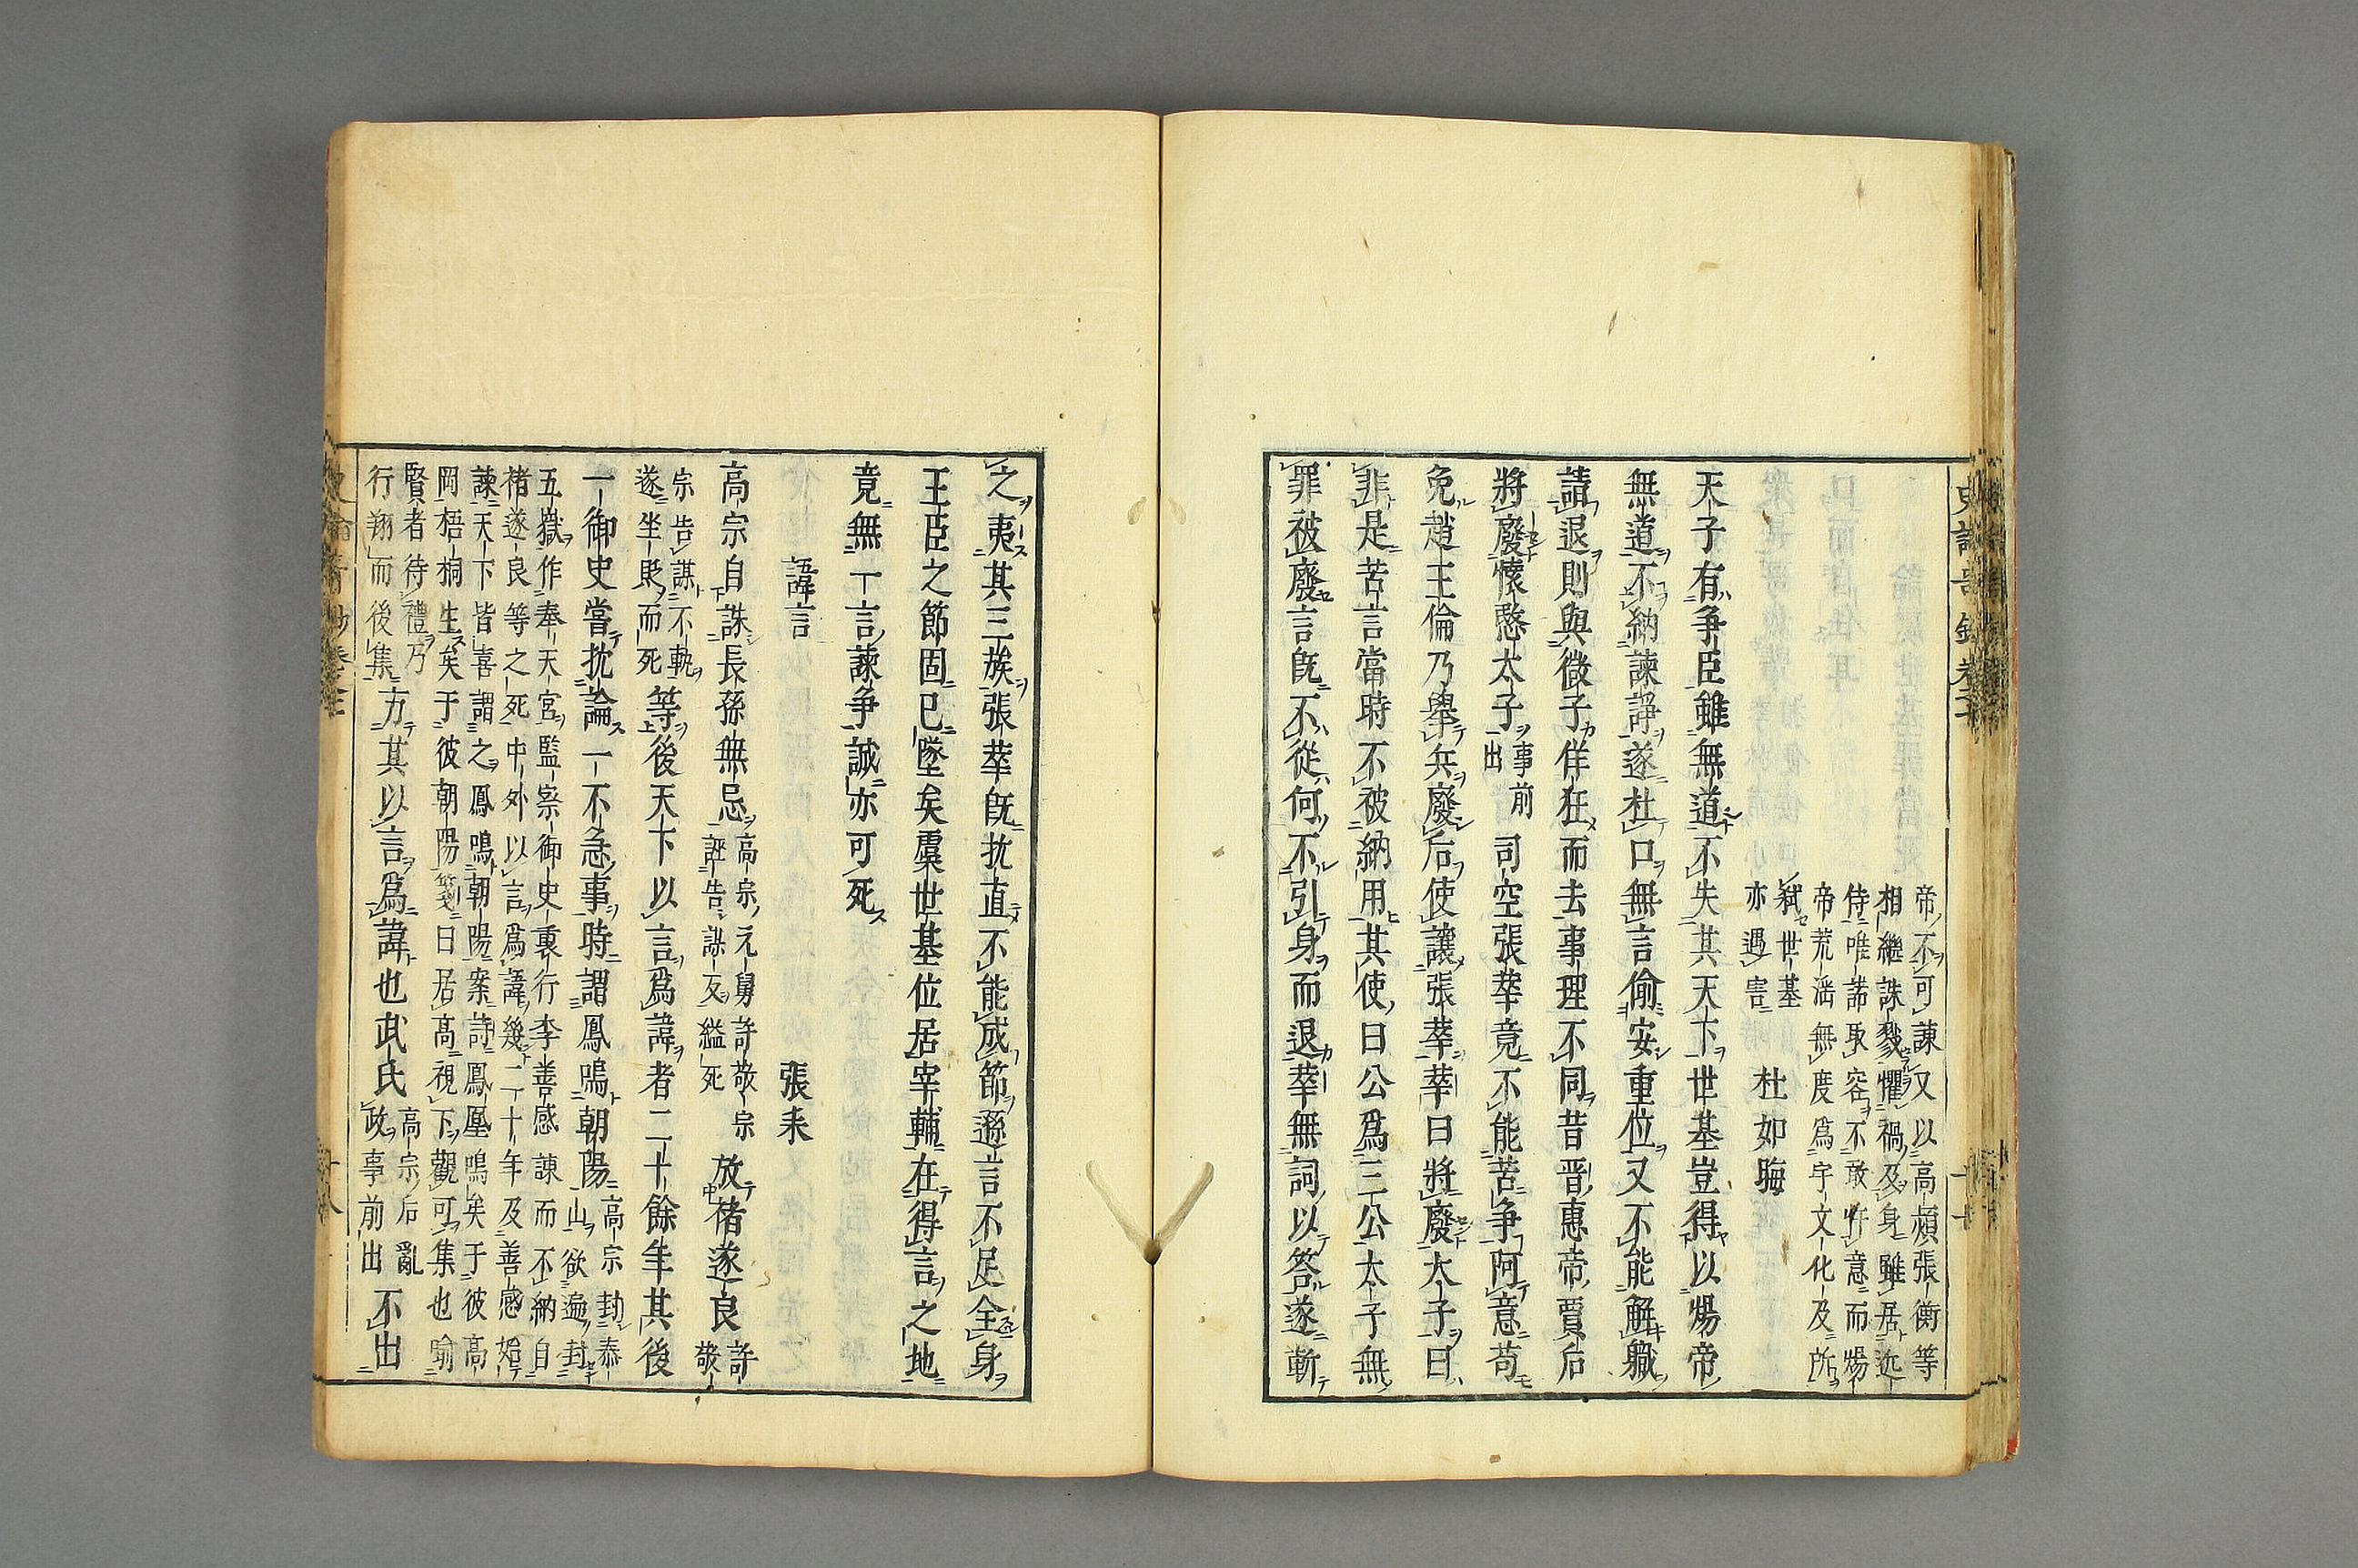 帝不可諫又以高熲張衡等
相繼誅戮懼禍及身雖居近
侍唯諾取容不敢忤意而煬
帝荒滛無度爲宇文化及所
弑世基
亦遇害
杜如晦
天子有爭臣雖無道不失其天下世基豈得以煬帝
無道不納諫諍遂杜口無言偷安重位又不能解職
請退則與微子佯狂而去事理不同昔晋惠帝賈后
將廢懷愍太子事前出司空張華竟不能苦爭阿意苟
免趙王倫乃舉兵廢后使讓張華華曰將廢大子日
非是苦言當時不被納用其使曰公爲三公太子無
罪被廢言旣不從何不引身而退華無詞以答遂斬
之夷其三族張華旣抗直不能成節遜言不足全身
王臣之節固已墜矣虞世基位居宰輔在得言之地
竟無一言諫爭誠亦可死
諱言
張耒
高宗自誅長孫無忌高宗元舅許敬宗誣告謀反縊死放褚遂良許敬
宗告謀不軌遂坐貶而死等後天下以言爲諱者二十餘年其後
一御史嘗抗論一不急事時謂鳳鳴朝陽高宗封泰山欲遍封
五嶽作奉天宮監察御史裏行李善感諫而不納自
褚遂良等之死中外以言爲諱幾二十年及善感始
諫天下皆喜謂之鳳鳴朝陽案詩鳳凰鳴矣于彼高
岡梧桐生矣于彼朝陽箋曰居高視下觀可集也喻
賢者待禮乃行翔而後集方其以言爲諱也武氏高宗后亂政事前出不出